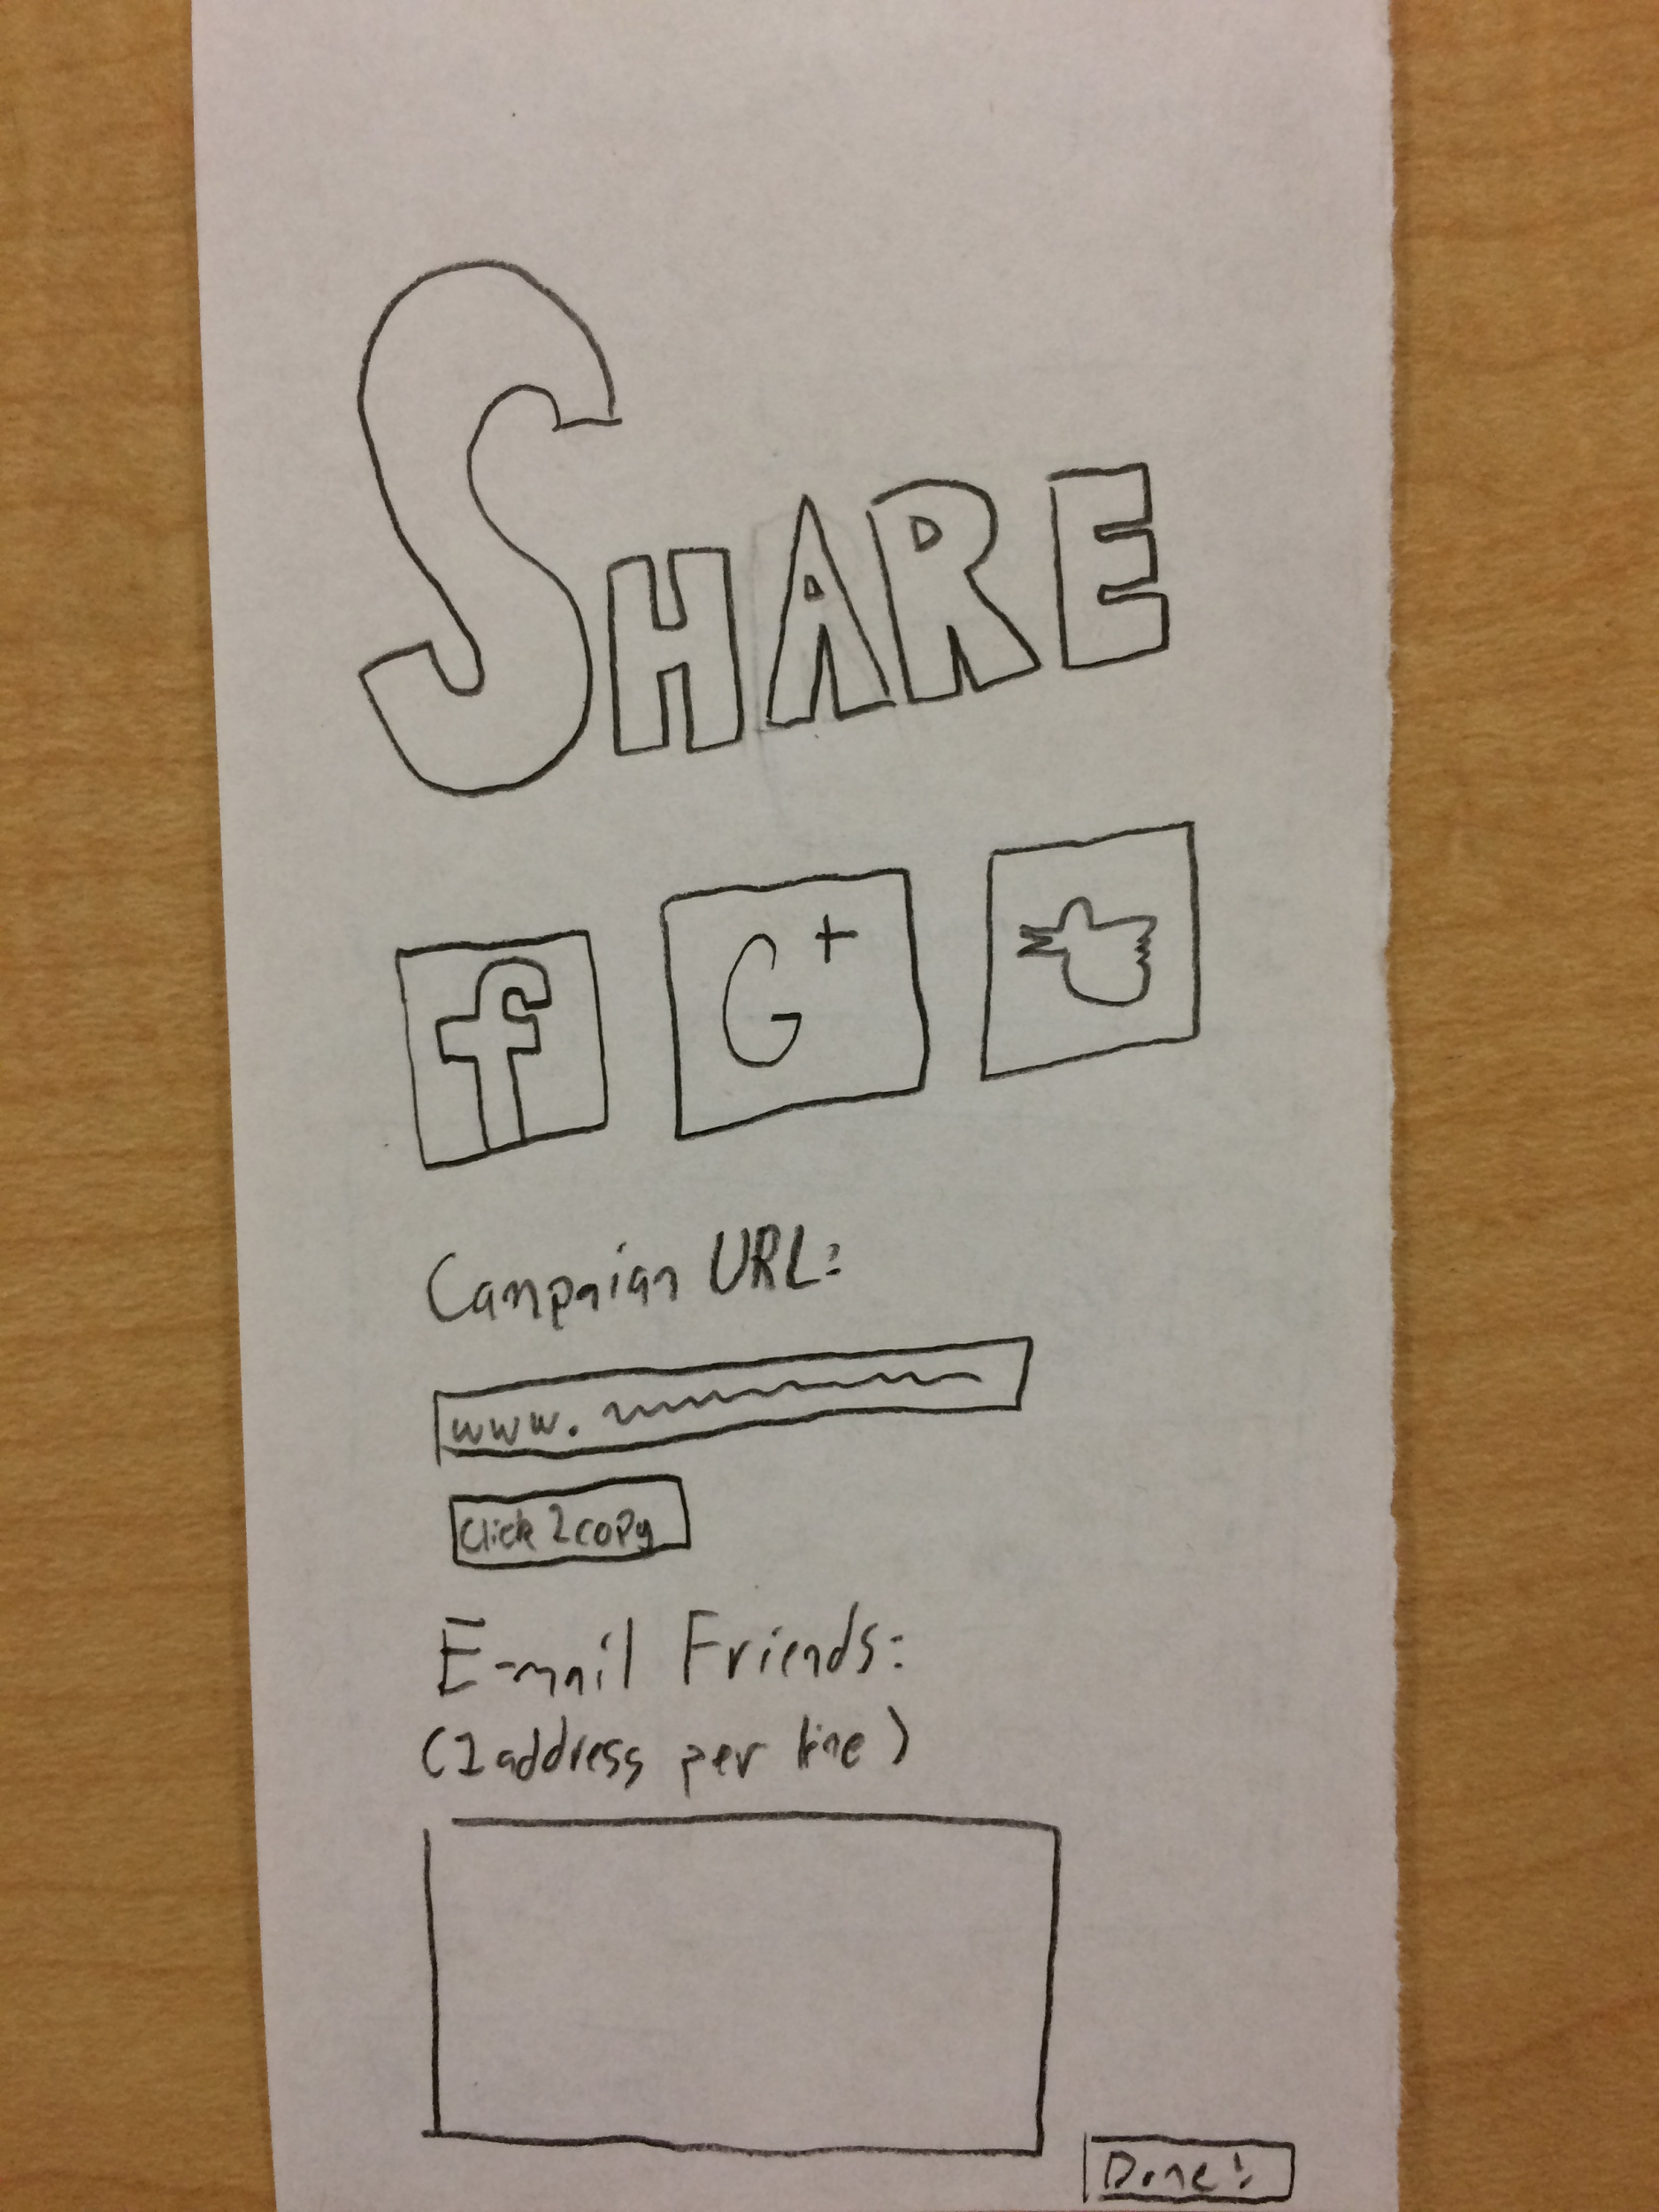 SHARE
f G+
Campaian URL:
www.
Click 2copy
E-mail Friends:
(1 address per line)
Done!